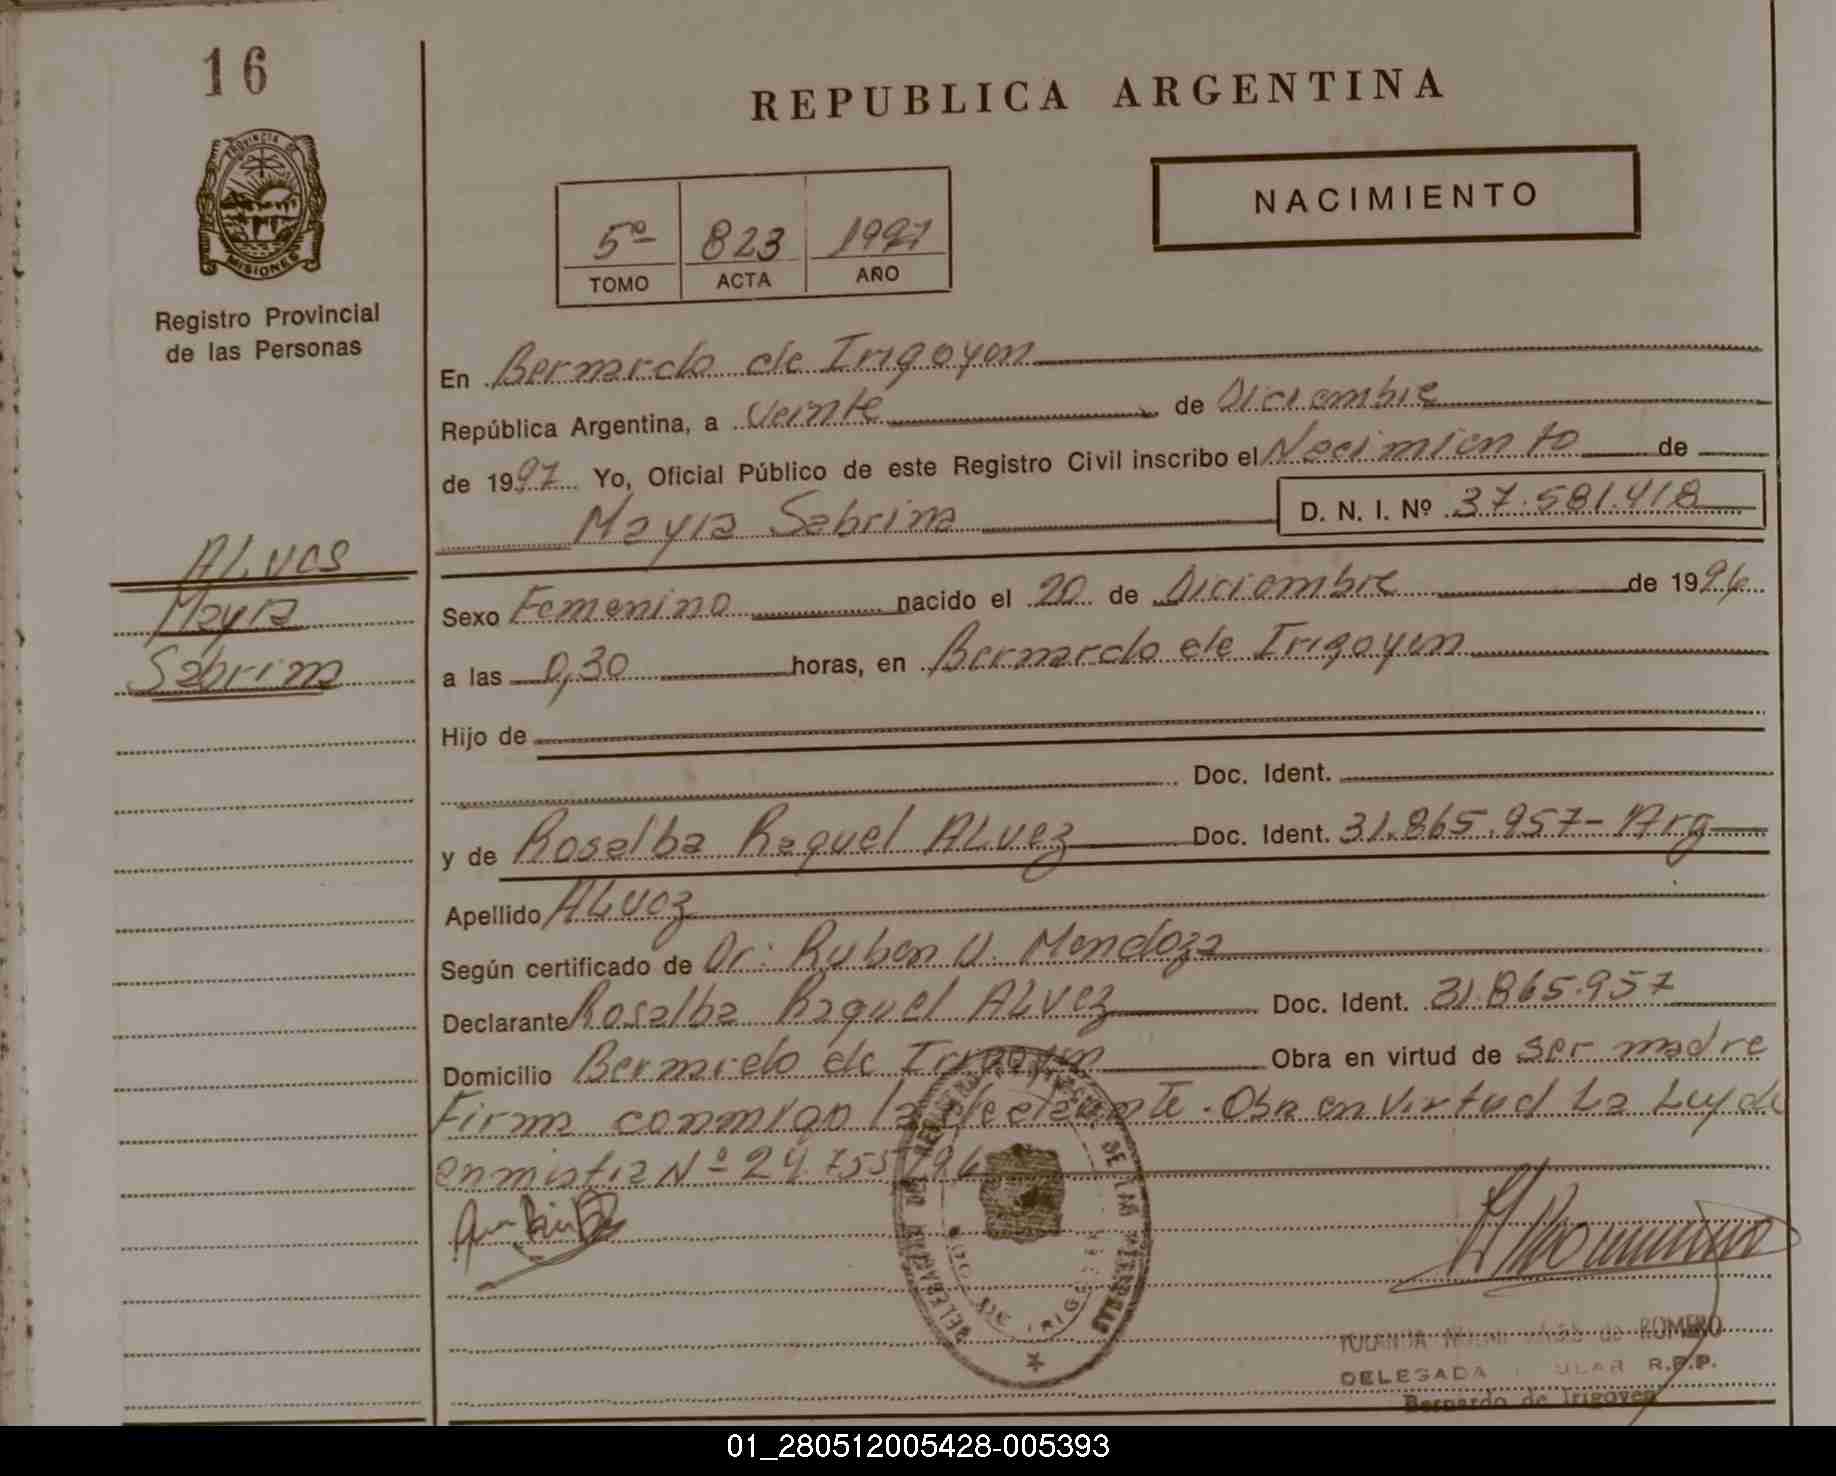 16
REPUBLICA ARGENTINA
PROVINCIA DE
MISIONES
NACIMIENTO
5º 823 1997
TOMO ACTA AÑO
Registro Provincial
de las Personas
En Bernardo de Irigoyen
República Argentina, a veinte de Diciembre
de 1997 Yo, Oficial Público de este Registro Civil inscribo el Nacimiento de
Mayra Sabrina D. N. I. Nº 37.581.418
ALVES
Mayra
Sabrina
Sexo Femenino nacido el 20 de Diciembre de 1996
a las 0,30 horas, en Bernardo de Irigoyen
Hijo de
Doc. Ident.
y de Rosalba Raquel ALVEZ Doc. Ident. 31.865.957- Arg
Apellido ALVEZ
Según certificado de Dr: Ruben V. Mendoza
Declarante Rosalba Raquel ALVEZ Doc. Ident. 31.865.957
Domicilio Bernardo de Irigoyen Obra en virtud de ser madre
Firma conmigo la declarante. Obra en virtud La Ley de
enmistia Nº 24.755/96
DE LAS PERSONAS
DELEGADA R.P.P.
ROMERO
Bernardo de Irigoyen
01_280512005428-005393